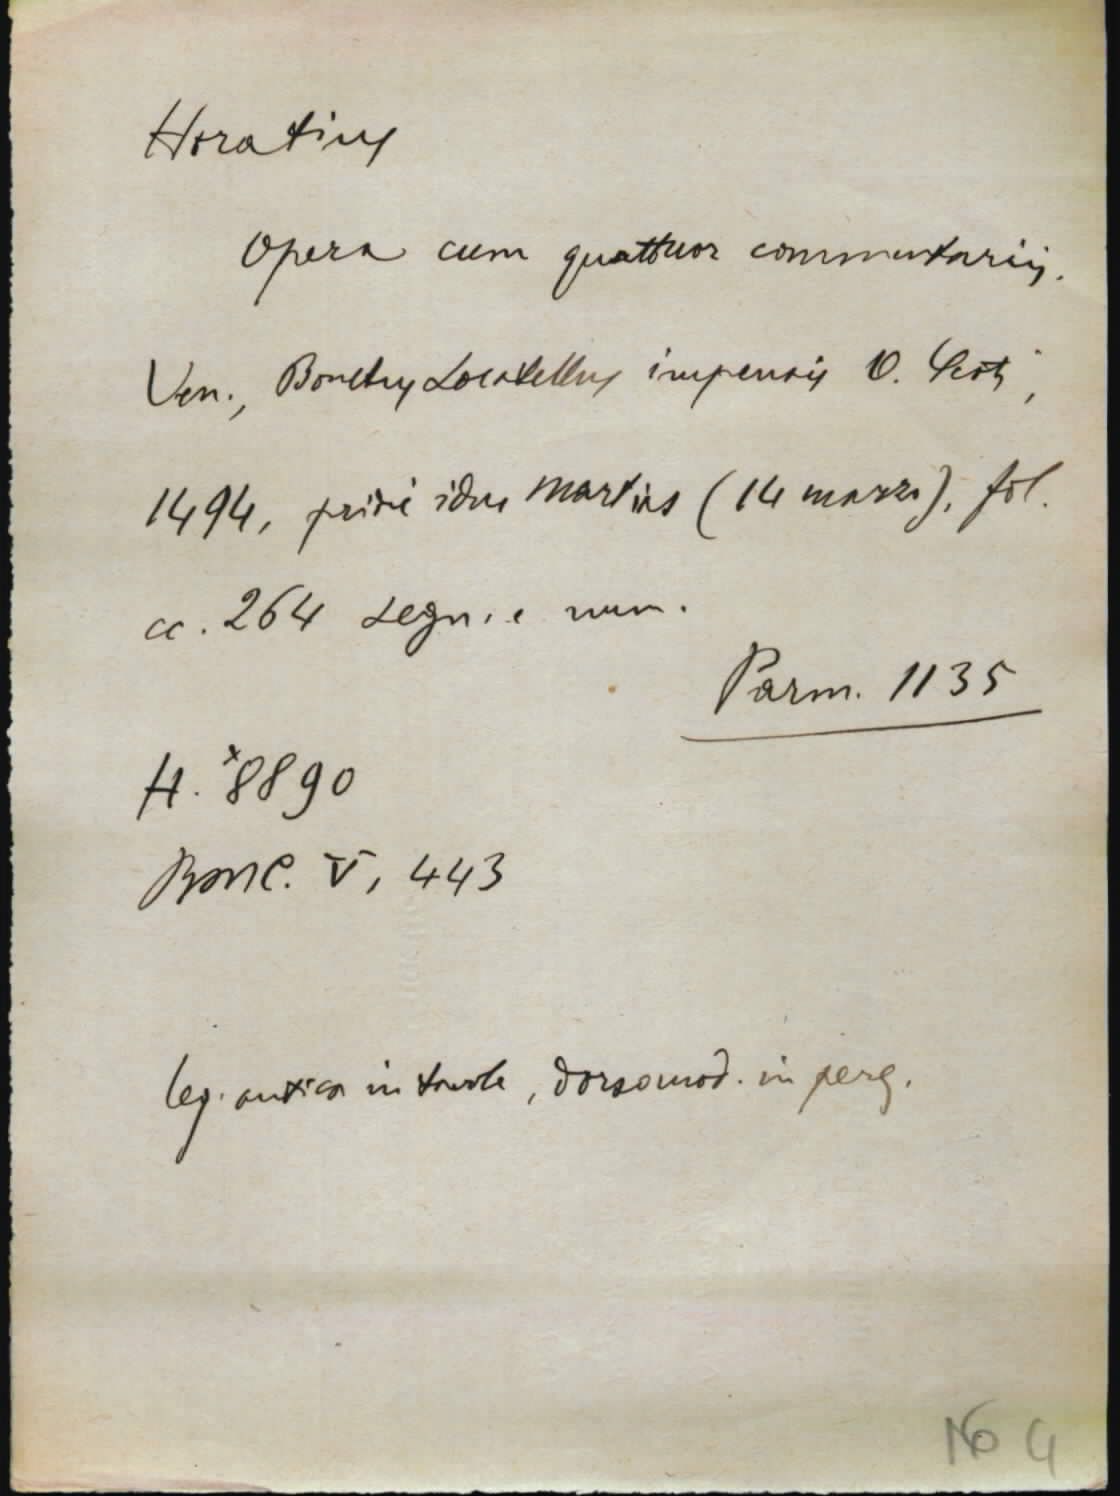 Horatius
Opera cum quattuor commentariis.
Ven., Bonetus Locatellus impensis O. Scoti,
1494, pridie idus martias (14 marzo), fol.
cc. 264 segn. e num.
Parm. 1135
H. *8890
BMC. V, 443
leg. antica in tavole, dorso mod. in perg.
No 4